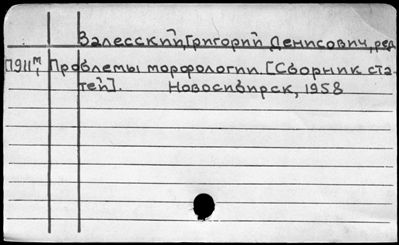 Залесский, Григорий Денисович, ред
П911м, Проблемы морфологии. [Сборник ста-
тей]. Новосибирск, 1958